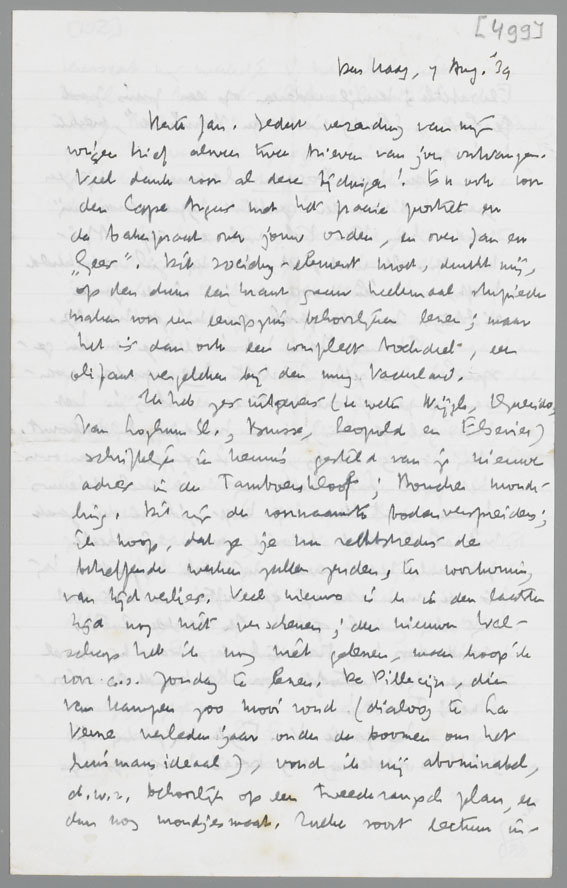 [499]
Den Haag, 7 Aug. '39
Beste Jan. Sedert verzending van mijn
vorigen brief alweer twee brieven van jou ontvangen.
Veel dank voor al deze tijdingen! En ook voor
den Cape Argus met het fraaie portret en
de over jouw orden, en over Jan en
"Geer". Dit element moet, denkt mij,
op den duur een krant gaan heelemaal
maken voor een behoorlijken lezer; maar
het is dan ook een compleet, een
olifant vergeleken bij den mug Vaderland.
Ik heb zes uitgevers (te weten Nijgh, Querido,
Van Loghum Sl., Brusse, Leopold en Elsevier)
schriftelijk in kennis gesteld van je nieuwe
adres in de Tamboerskloof; Boucher monde-
ling. Dit zijn de voornaamste;
ik hoop, dat ze je nu rechtstreeks de
betreffende werken zullen zenden, ter voorkoming
van tijdverlies. Veel nieuws is er in den laatsten
tijd nog niet verschenen; den nieuwen Wal-
schap heb ik nog niet gelezen, maar hoop ik
voor a.s. Zondag te lezen. De Pillecijn, dien
Van Kampen zoo mooi vond (dialoog te La
verleden jaar onder de boomen om het
huismansideaal), vond ik nij abominabel,
d.w.z. behoorlijk op een tweederangsch plan, en
dan nog mondjesmaat. Zulke soort lectuur in-